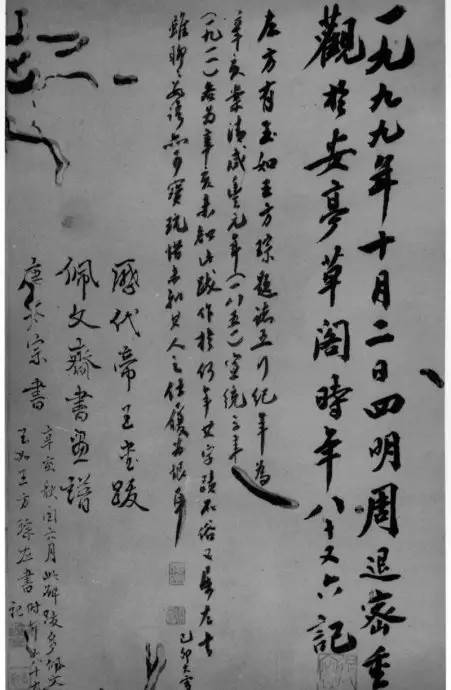 一九九九年十月二日四明周退密重
觀於安亭草閣時年八十又六記
左方有玉如王方琮題誌五行紀年為
辛亥案清咸豐元年(一八五一)宣統三年
(一九一一)各為辛亥未知此跋作於何年其字蹟不俗又具左書
雖聊〻數語亦可寶玩惜未知其人之仕履為恨耳
己卯大雪
歷代帝王畫跋
佩文齋書畫譜
唐太宗書
辛亥秋閏六月此碑跋多
玉如王方琮左書時年
記